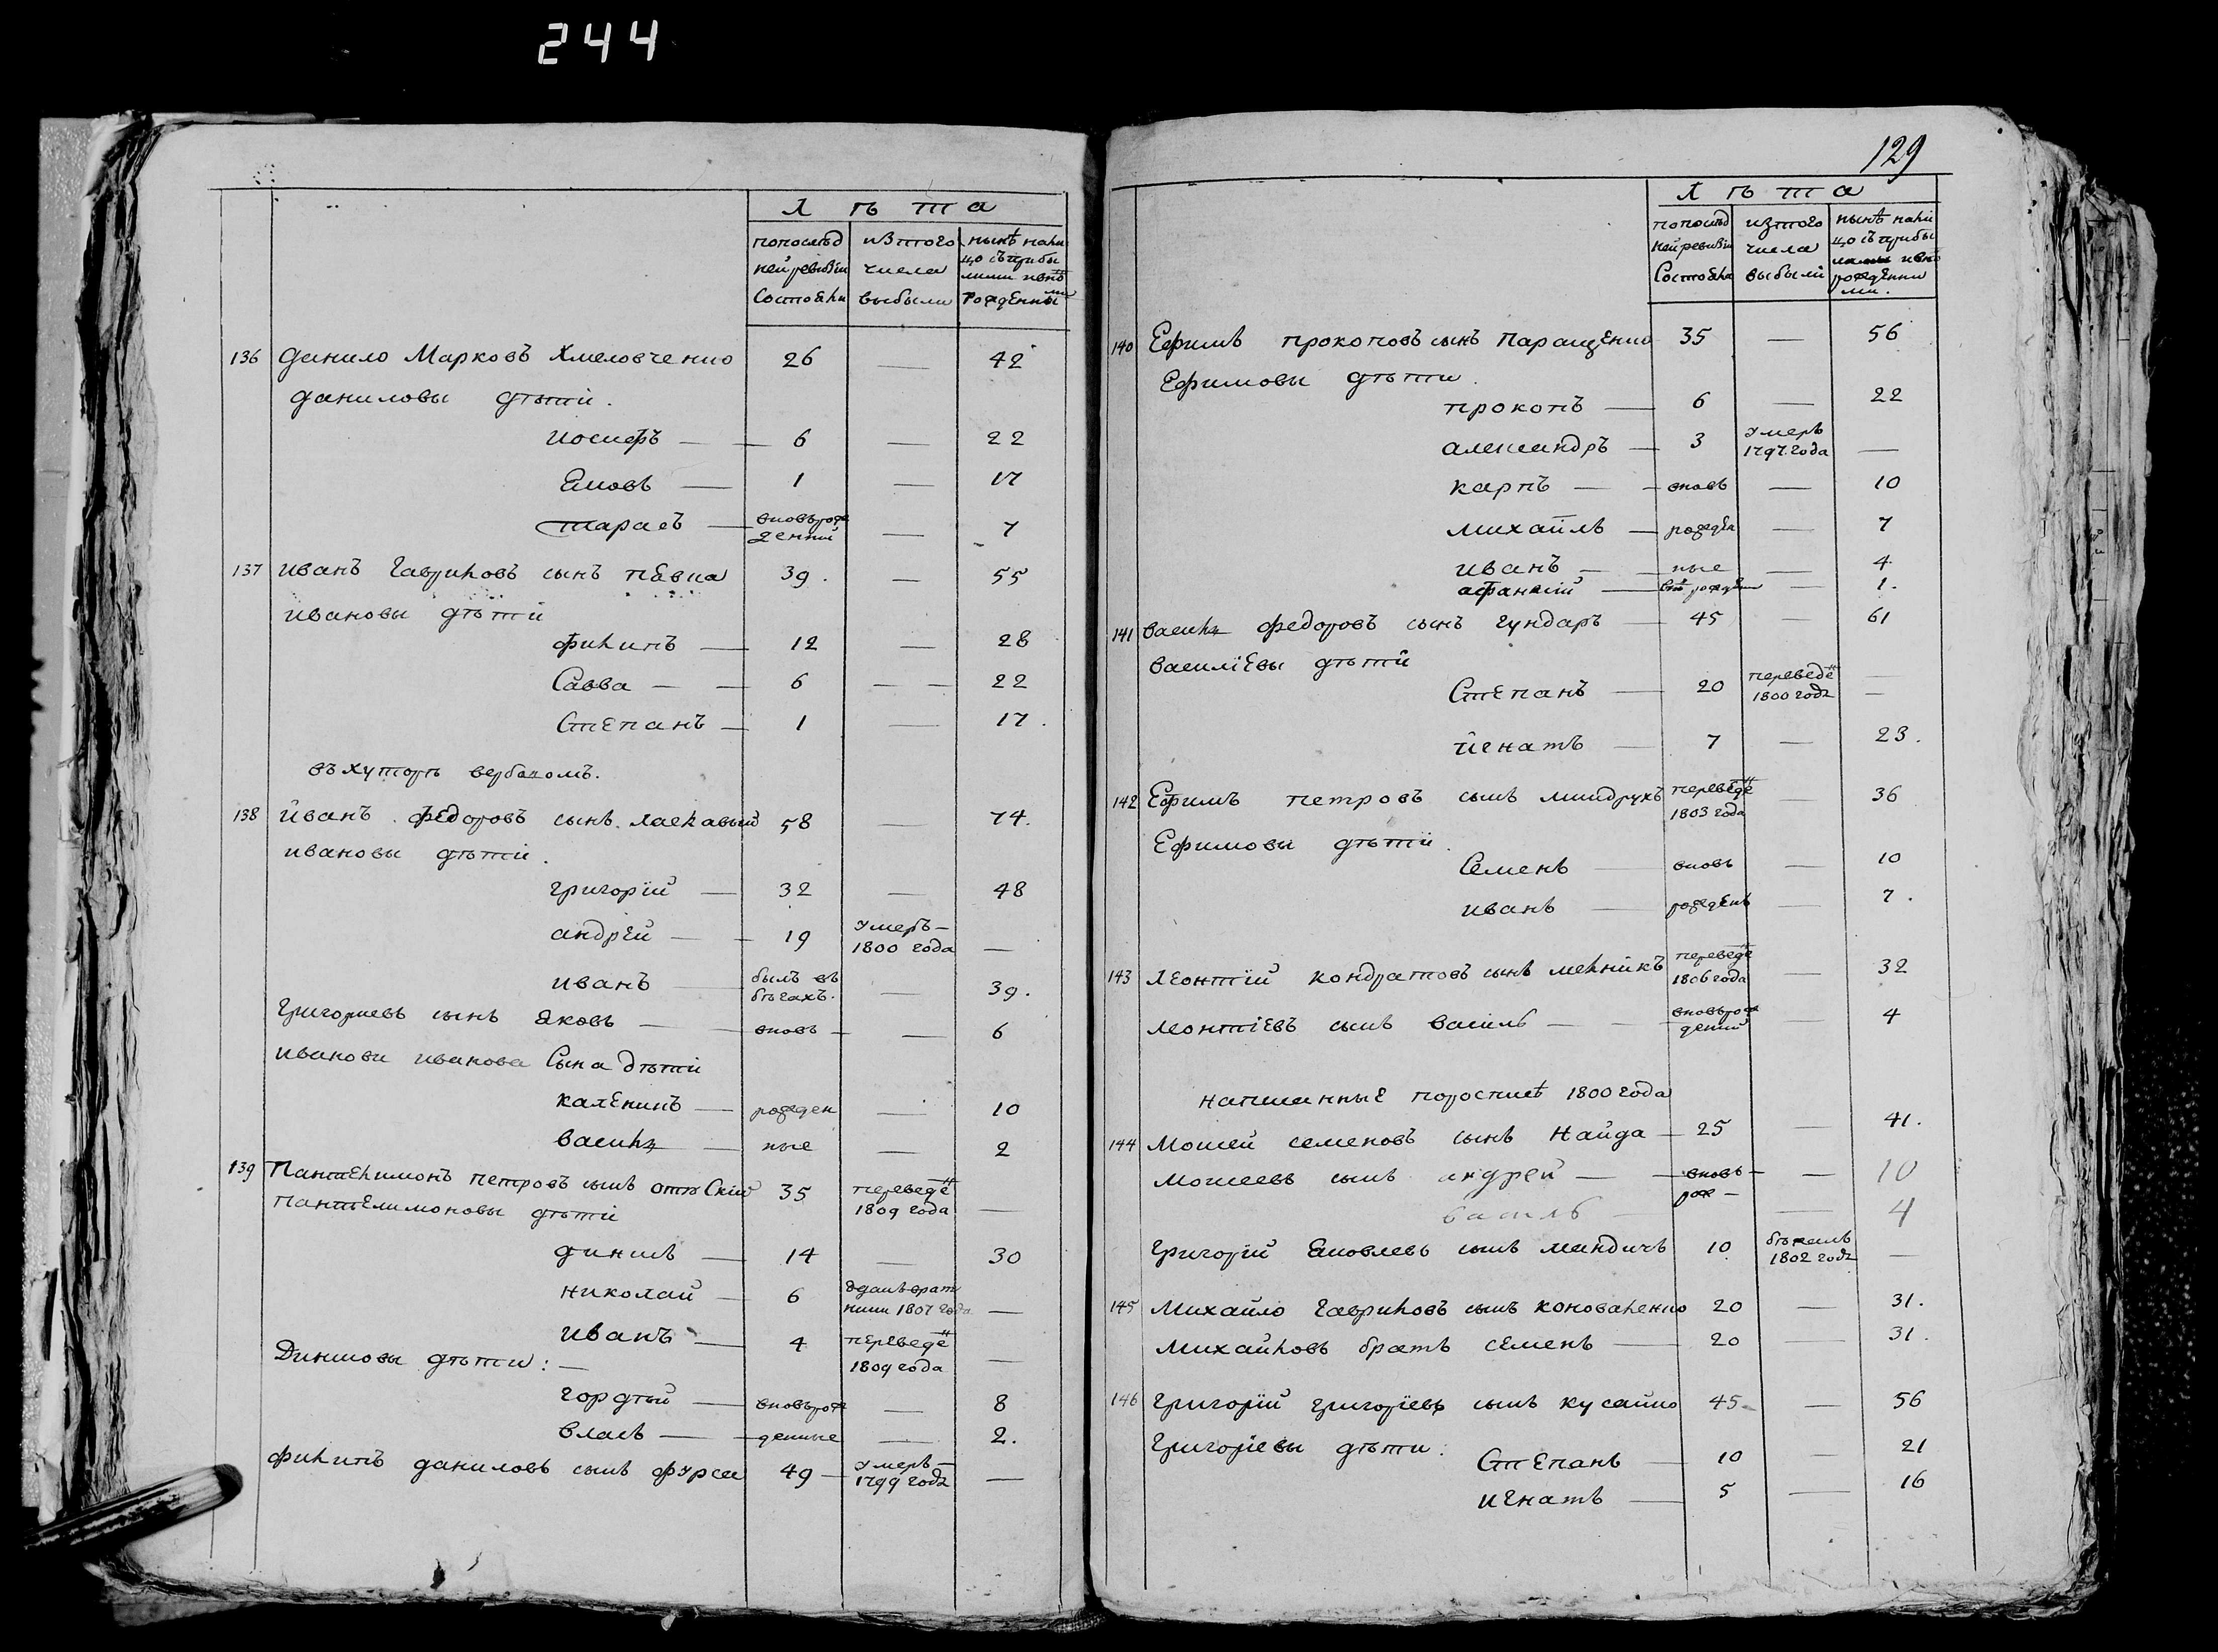 244
Лѣта
попослѣд ней ревизіи состояли | изтого числа выбыли | нынѣ нали цо съ прибы лыми и внѣ рожденны ми
136 данило Марковъ Хмеловченко 26 — 42
даниловы дѣтй.
иосифъ — 6 — 22
Яковъ — 1 — 17
тарасъ — вновь рож денній — 7
137 иванъ Гавриловъ сынъ пѣвна 39. — 55
ивановы дѣтй
филипъ — 12 — 28
Савва — 6 — 22
Степанъ — 1 — 17.
въ хуторѣ вербаномъ.
138 иванъ федоровъ сынъ ласкавый 58 — 74.
ивановы дѣтй.
григорій — 32 — 48
андрей — 19 умеръ — 1800 года —
иванъ — былъ въ бѣгахъ. — 39.
Григориевъ сынъ Яковъ — вновь — 6
ивановы иванова сына дѣтй
каленикъ — рожден — 10
василь — ные — 2
139 Пантелимонъ петровъ сынъ 35 переведе 1809 года —
пантелимоновы дѣтй
динисъ — 14 — 30
николай — 6 1807 года —
иванъ — 4 переведе 1809 года —
Динисовы дѣти: —
гордѣй — вновь рож — 8
власъ — денные — 2.
филипъ даниловъ сынъ фурса 49 — умеръ — 1799 года —
129
Лѣта
попослѣд ней ревизіи состояли | изтого числа выбыли | нынѣ нали цо съ прибы лыми и внѣ рожденны ми.
140 Ефимъ прокоповъ сынъ паращенко 35 — 56
Ефимовы дѣти.
прокопъ — 6 — 22
александръ — 3 умеръ 1797 года —
карпъ — вновь — 10
михайлъ — рожден — 7
иванъ — ные — 4
афанасій — внѣ рожден — 1.
141 василь федоровъ сынъ гундаръ — 45 — 61
василіевы дѣтй
Степанъ — 20 переведе 1800 года —
игнатъ — 7 — 23.
142 Ефимъ петровъ сынъ миндрухъ переведе 1803 года — 36
Ефимовы дѣтй.
Семенъ — вновь — 10
иванъ — рожденъ — 7.
143 леонтій кондратовъ сынъ мелникъ переведе 1806 года — 32
леонтіевъ сынъ василь — вновь рож деній — 4
написанные поросписѣ 1800 года
144 мосией семеновъ сынъ найда — 25 — 41.
мосиеевъ сынъ андрей — вновь — 10
рож —
василь — 4
григорій Яковлевъ сынъ миндичъ 10 бѣжалъ 1802 года —
145 михайло гавриловъ сынъ коноваленко 20 — 31.
михайловъ братъ семенъ — 20 — 31.
146 григорій григоріевъ сынъ кусайко 45 — 56
григоріевы дѣти:
Степанъ — 10 — 21
игнатъ — 5 — 16